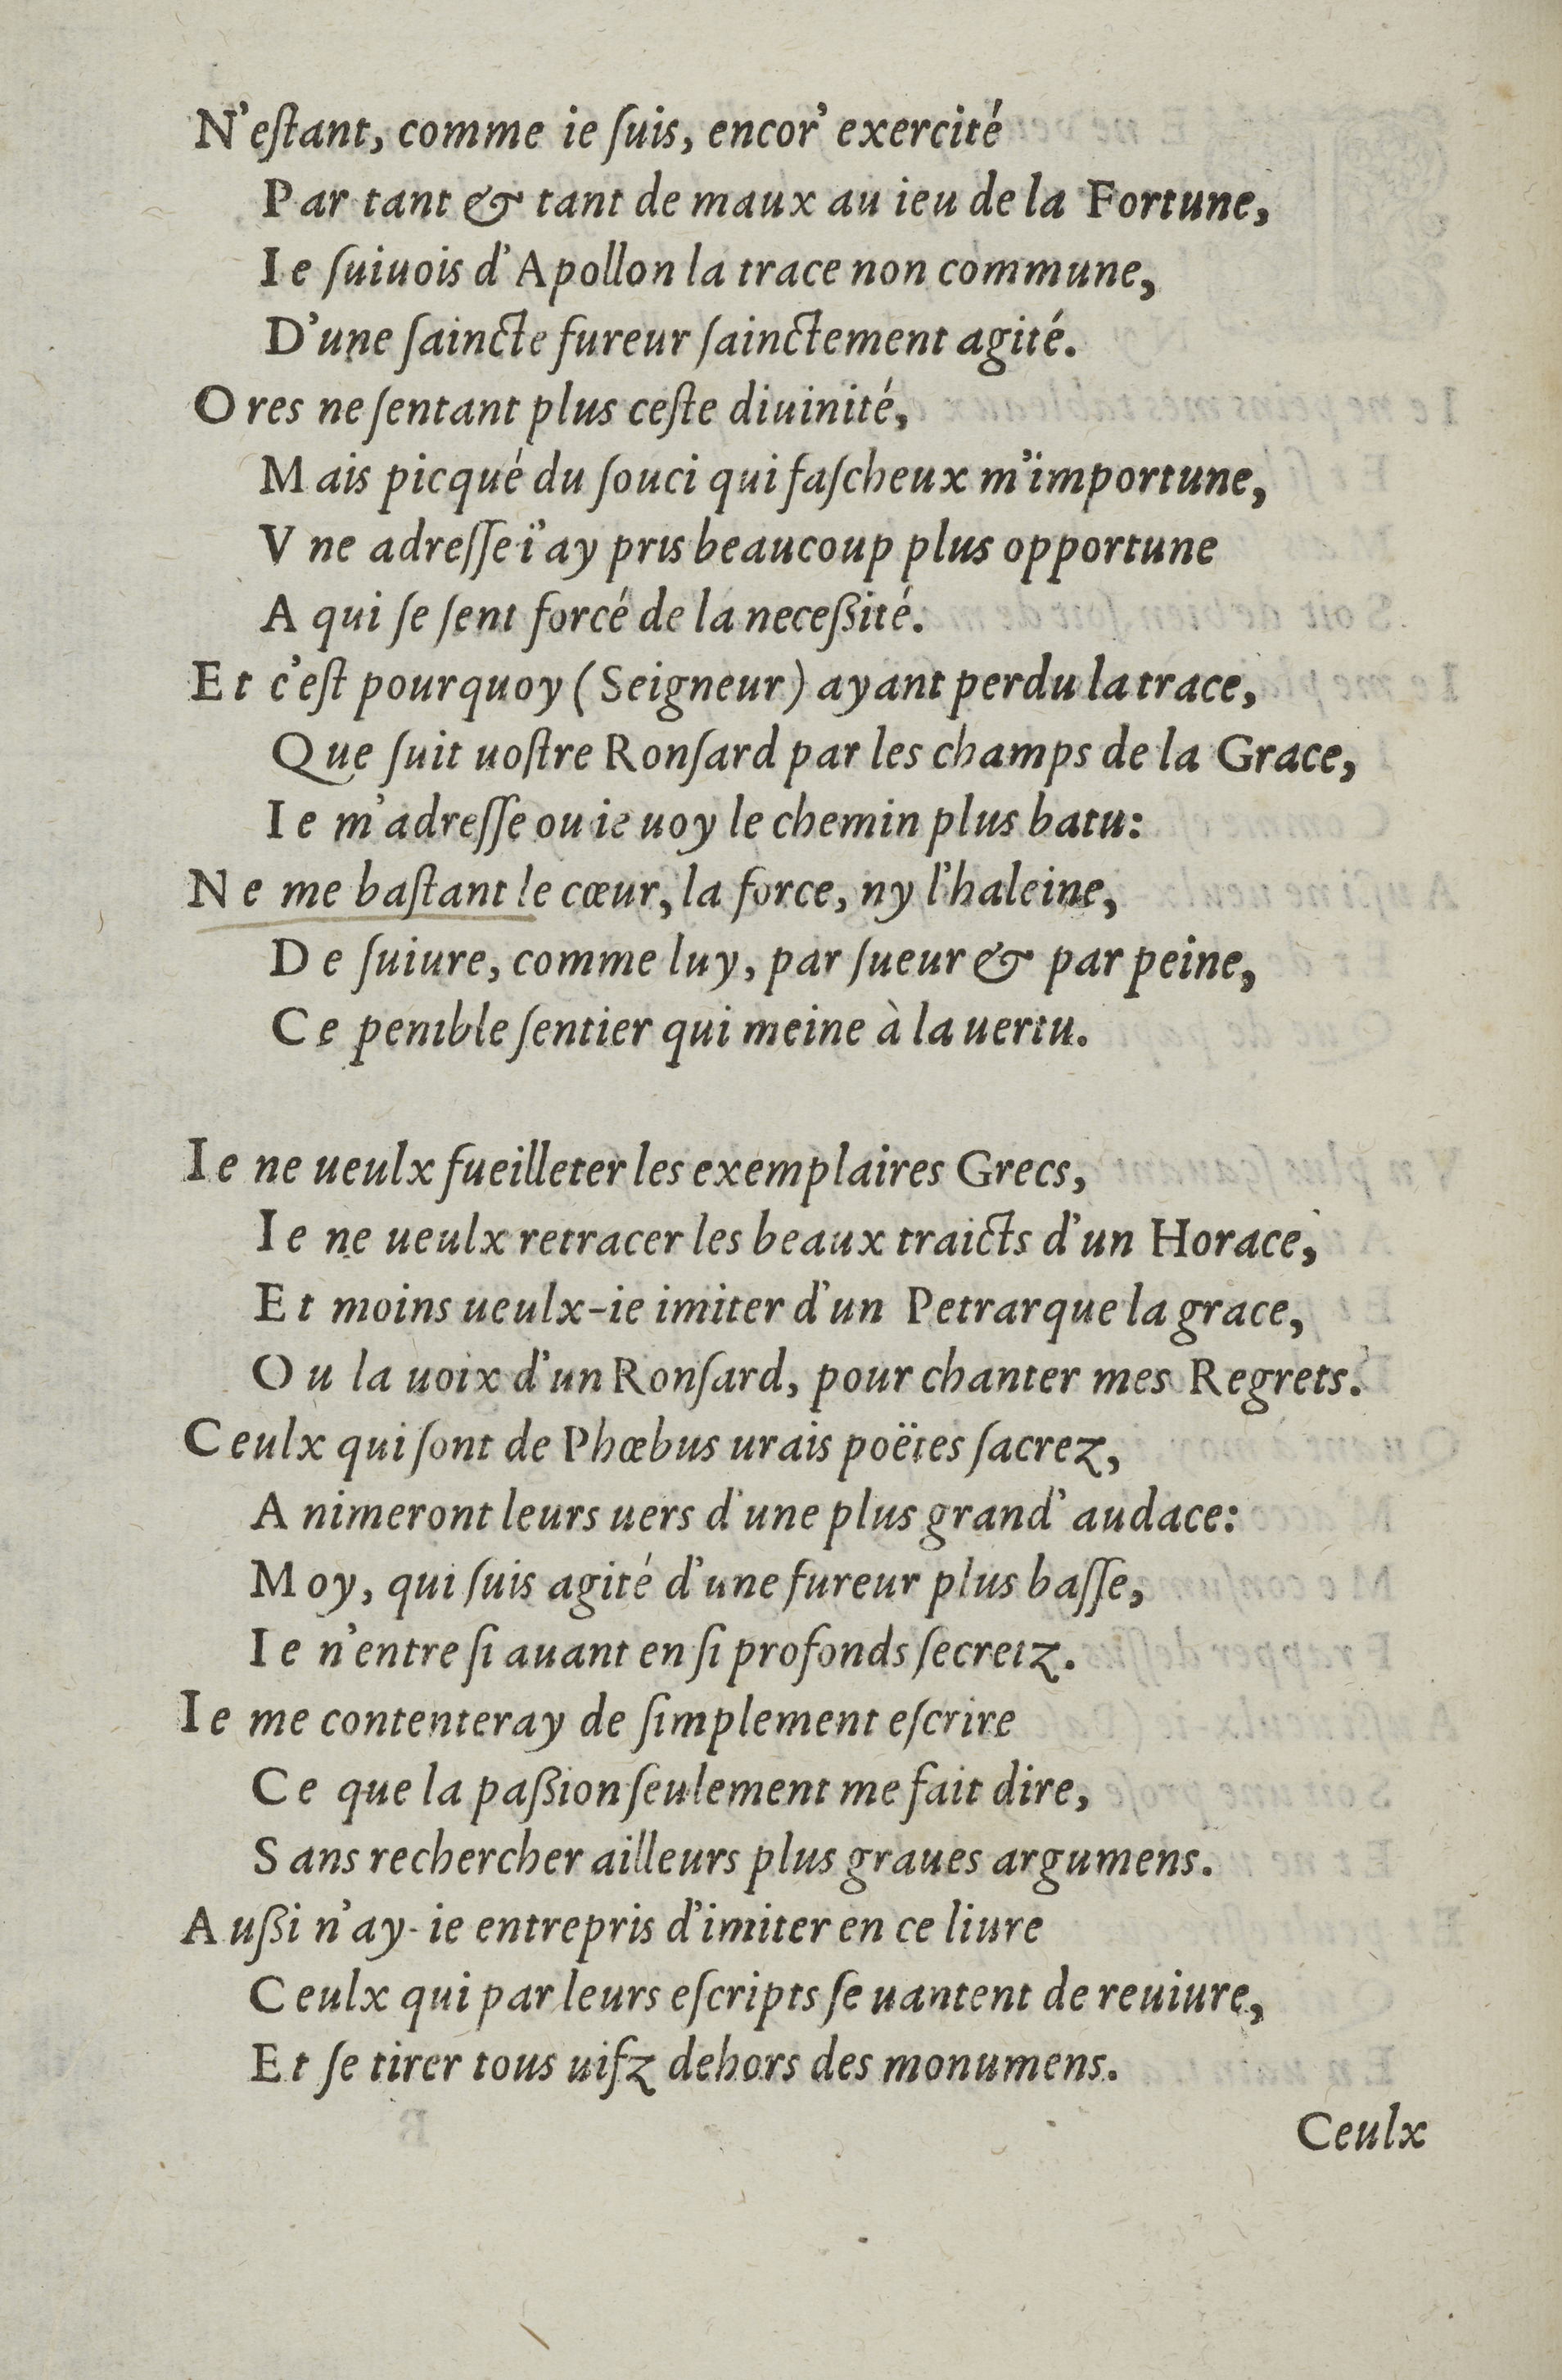 N'eſtant, comme ie ſuis, encor' exercité
Par tant & tant de maux au ieu de la Fortune,
Ie ſuiuois d'Apollon la trace non commune,
D'une ſaincte fureur ſainctement agité.
Ores ne ſentant plus ceſte diuinité,
Mais picqué du ſouci qui faſcheux m'importune,
Vne adreſſe i'ay pris beaucoup plus opportune
A qui ſe ſent forcé de la neceßité.
Et c'eſt pourquoy (Seigneur) ayant perdu la trace,
Que ſuit uoſtre Ronſard par les champs de la Grace,
Ie m'adreſſe ou ie uoy le chemin plus batu:
Ne me baſtant le cœur, la force, ny l'haleine,
De ſuiure, comme luy, par ſueur & par peine,
Ce penible ſentier qui meine à la uertu.
Ie ne ueulx fueilleter les exemplaires Grecs,
Ie ne ueulx retracer les beaux traicts d'un Horace,
Et moins ueulx-ie imiter d'un Petrarque la grace,
Ou la uoix d'un Ronſard, pour chanter mes Regrets.
Ceulx qui ſont de Phœbus urais poëtes ſacrez,
Animeront leurs uers d'une plus grand' audace:
Moy, qui ſuis agité d'une fureur plus baſſe,
Ie n'entre ſi auant en ſi profonds ſecretz.
Ie me contenteray de ſimplement eſcrire
Ce que la paßion ſeulement me fait dire,
Sans rechercher ailleurs plus graues argumens.
Außi n'ay-ie entrepris d'imiter en ce liure
Ceulx qui par leurs eſcripts ſe uantent de reuiure,
Et ſe tirer tous uifz dehors des monumens.
Ceulx